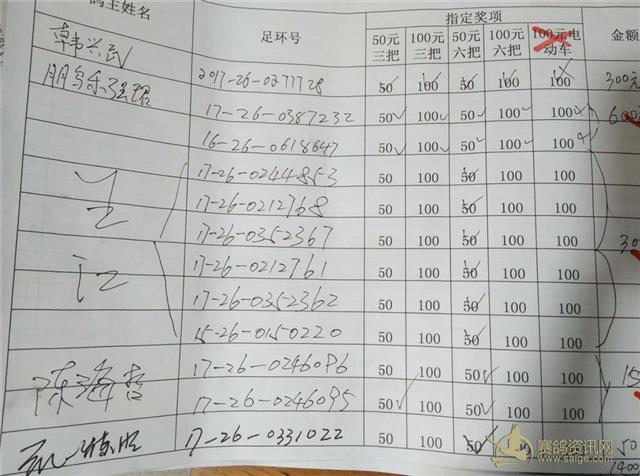 鸽主姓名 足环号 指定奖项 金额
50元三把 100元三把 50元六把 100元六把 100元电动车
韩兴武 2017-26-0277728 50 100 50 100 100 300元
朋鸟乐 17-26-0387232 50 100 50 100 100 600
16-26-0618647 50 100 50 100 100
17-26-0244853 50 100 50 100 100
17-26-0212768 50 100 50 100 100
王 17-26-0352367 50 100 50 100 100 30
江 17-26-0212761 50 100 50 100 100
17-26-0352362 50 100 50 100 100
15-26-0150220 50 100 50 100 100
17-26-0246096 50 100 50 100 100 15
陈海哲 17-26-0246095 50 100 50 100 100
17-26-0331022 50 100 50 100 50
1400
赛鸽资讯网
www.saige.com